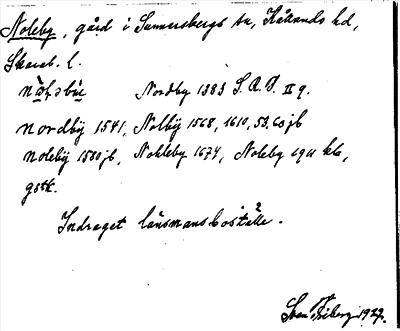 Noleby, gård i Sunnersbergs sn, Kållands hd,
Skarab. l.
Nordby 1383 S.R.B. II 9.
nordbÿ 1541, Nolbÿ 1568, 1610, 53, 63 jb
nolebÿ 1580 jb, Nohleby 1674, Noleby 1911 kb,
gstk.
Indraget länsmansboställe.
Sven 1927.